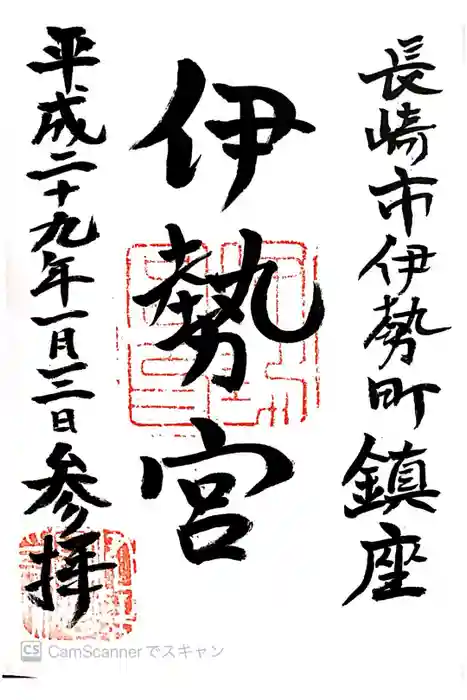 長崎市伊勢町鎮座
伊勢宮
平成二十九年一月三日
参拝
CS CamScannerでスキャン